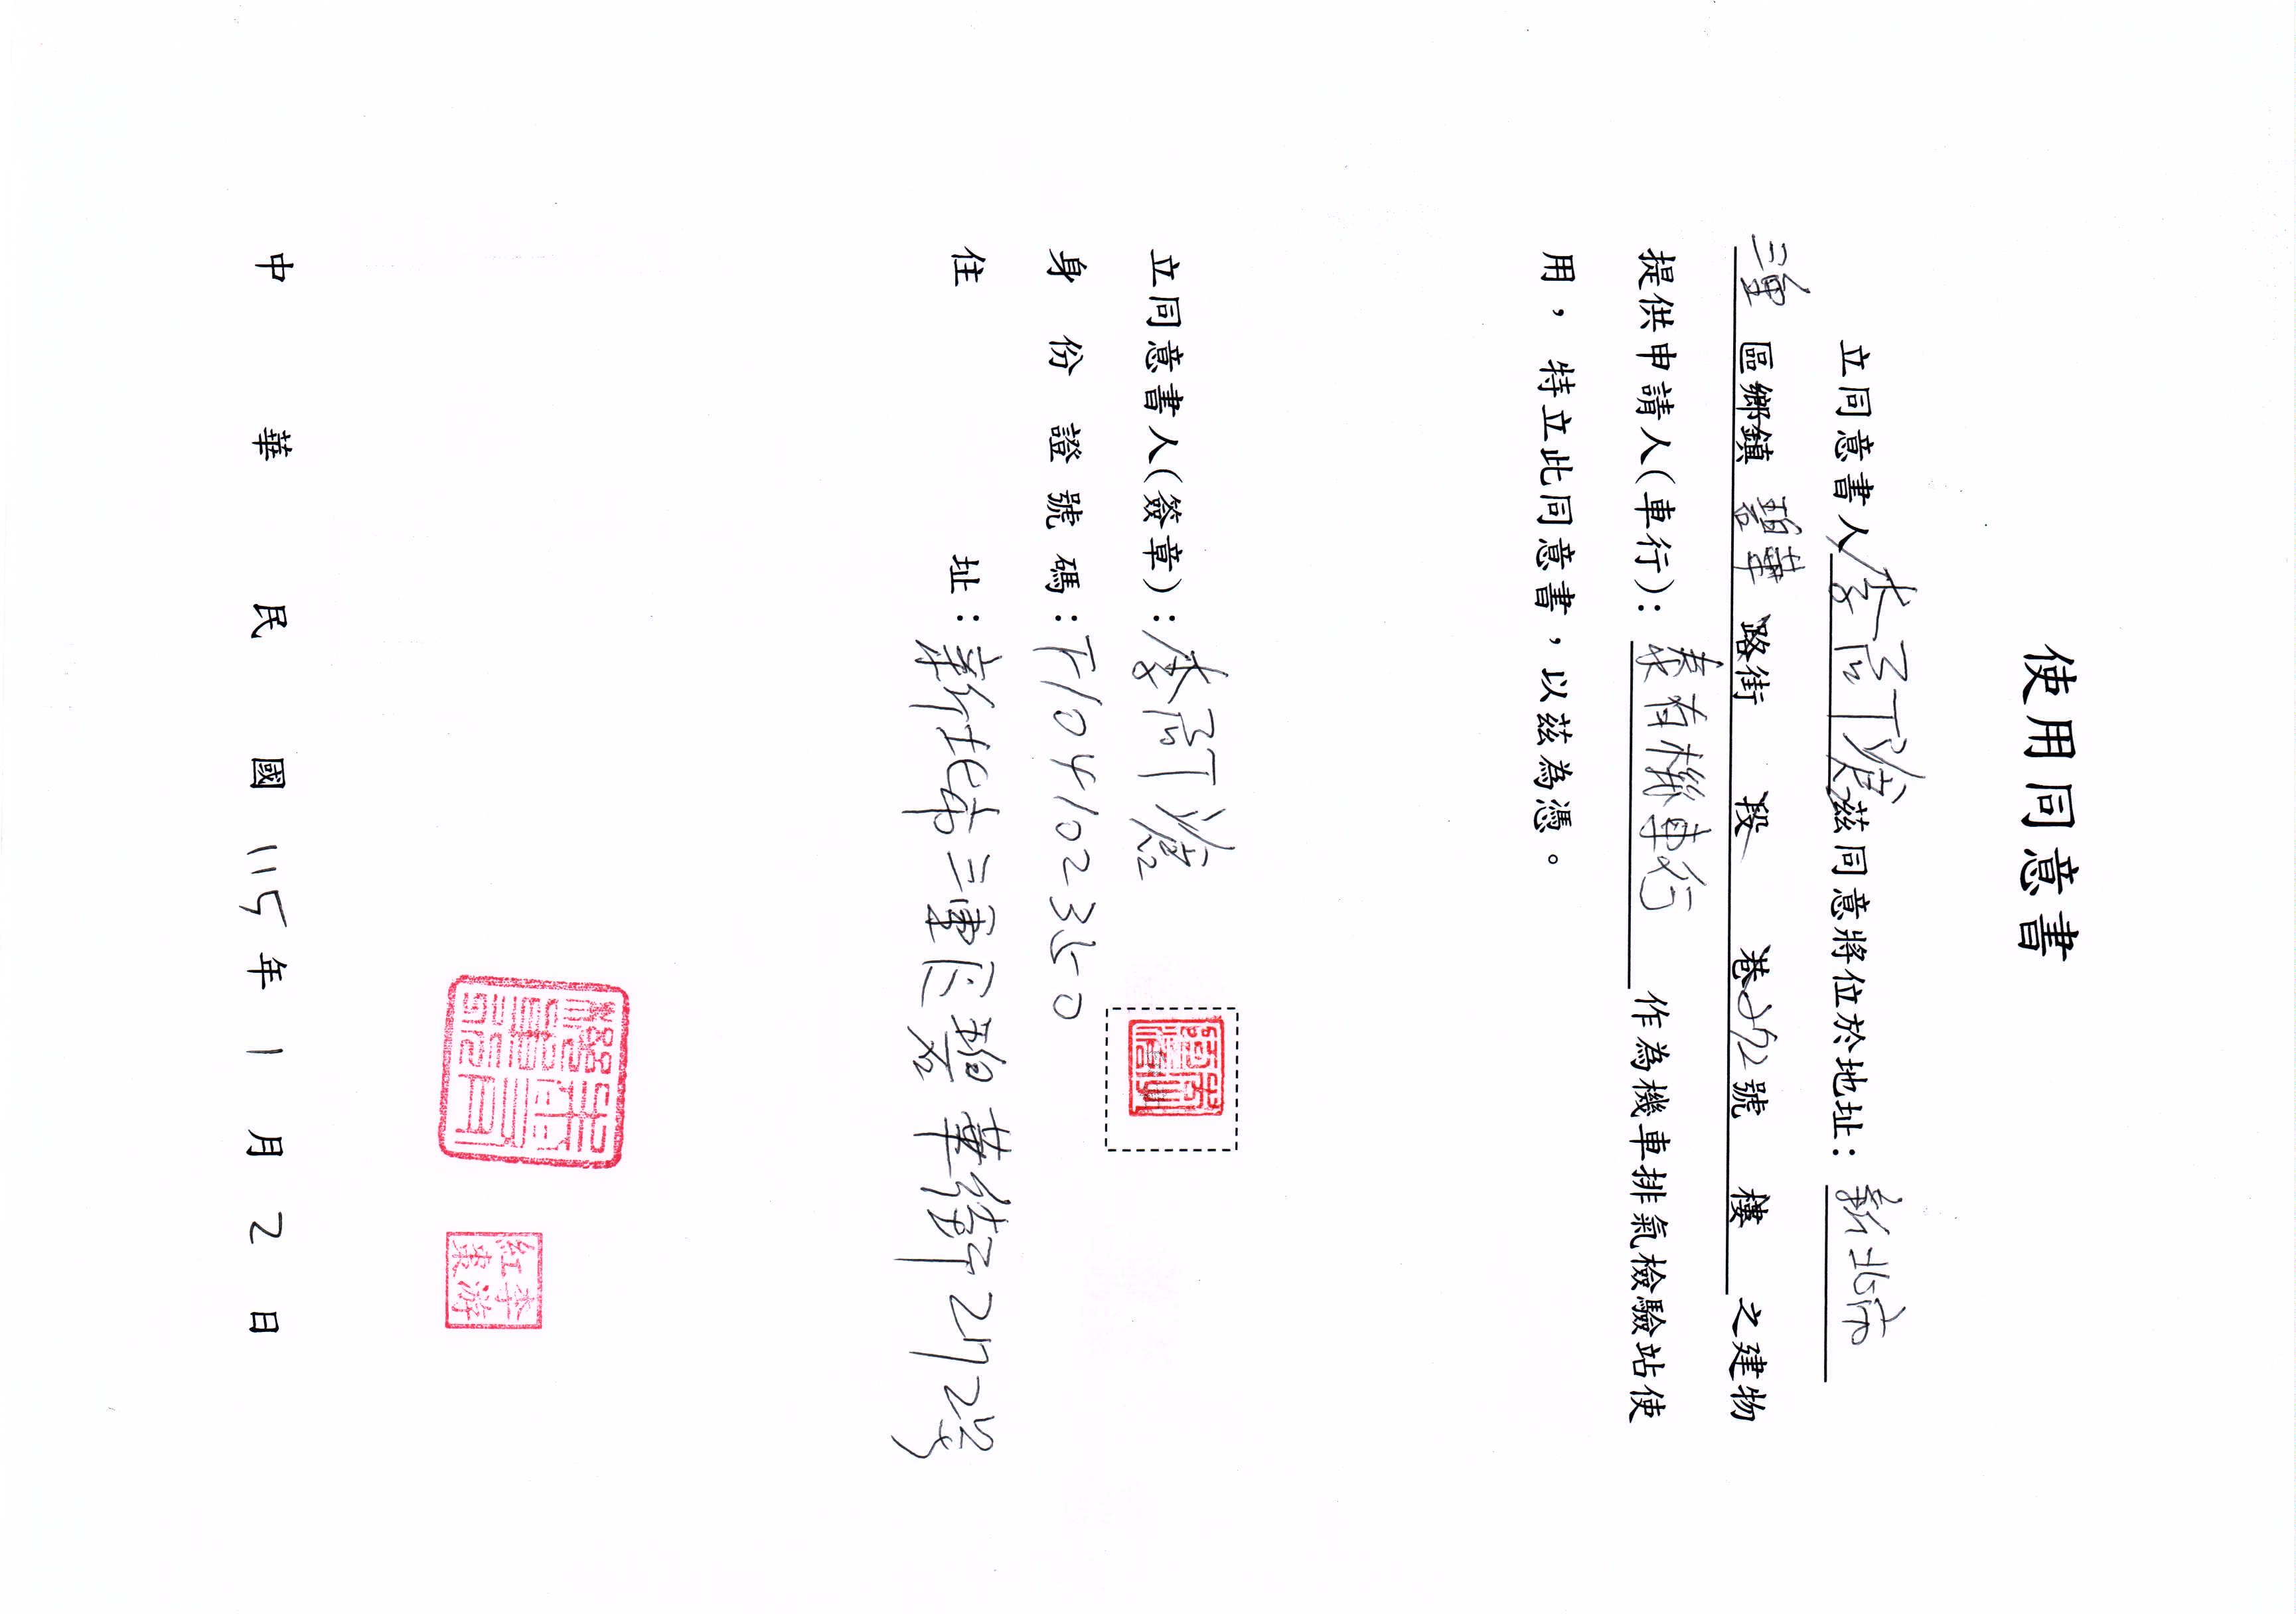 使用同意書
立同意書人李阿 茲同意將位於地址：新北市
三重 區鄉鎮 碧華 路街 段 巷272號 樓 之建物
提供申請人(車行)：泰有機車行 作為機車排氣檢驗站使
用，特立此同意書，以茲為憑。
立同意書人(簽章)：李阿
身份證號碼：F104102350
住址：新北市三重區碧華街272號
中華民國115年1月2日